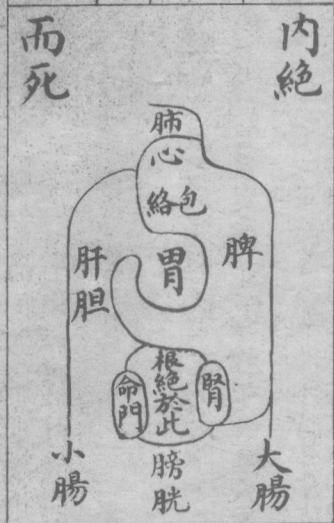 内絶
而死
肺
心
包絡
胃
脾
肝胆
根絶於此
腎
命門
大腸
膀胱
小腸